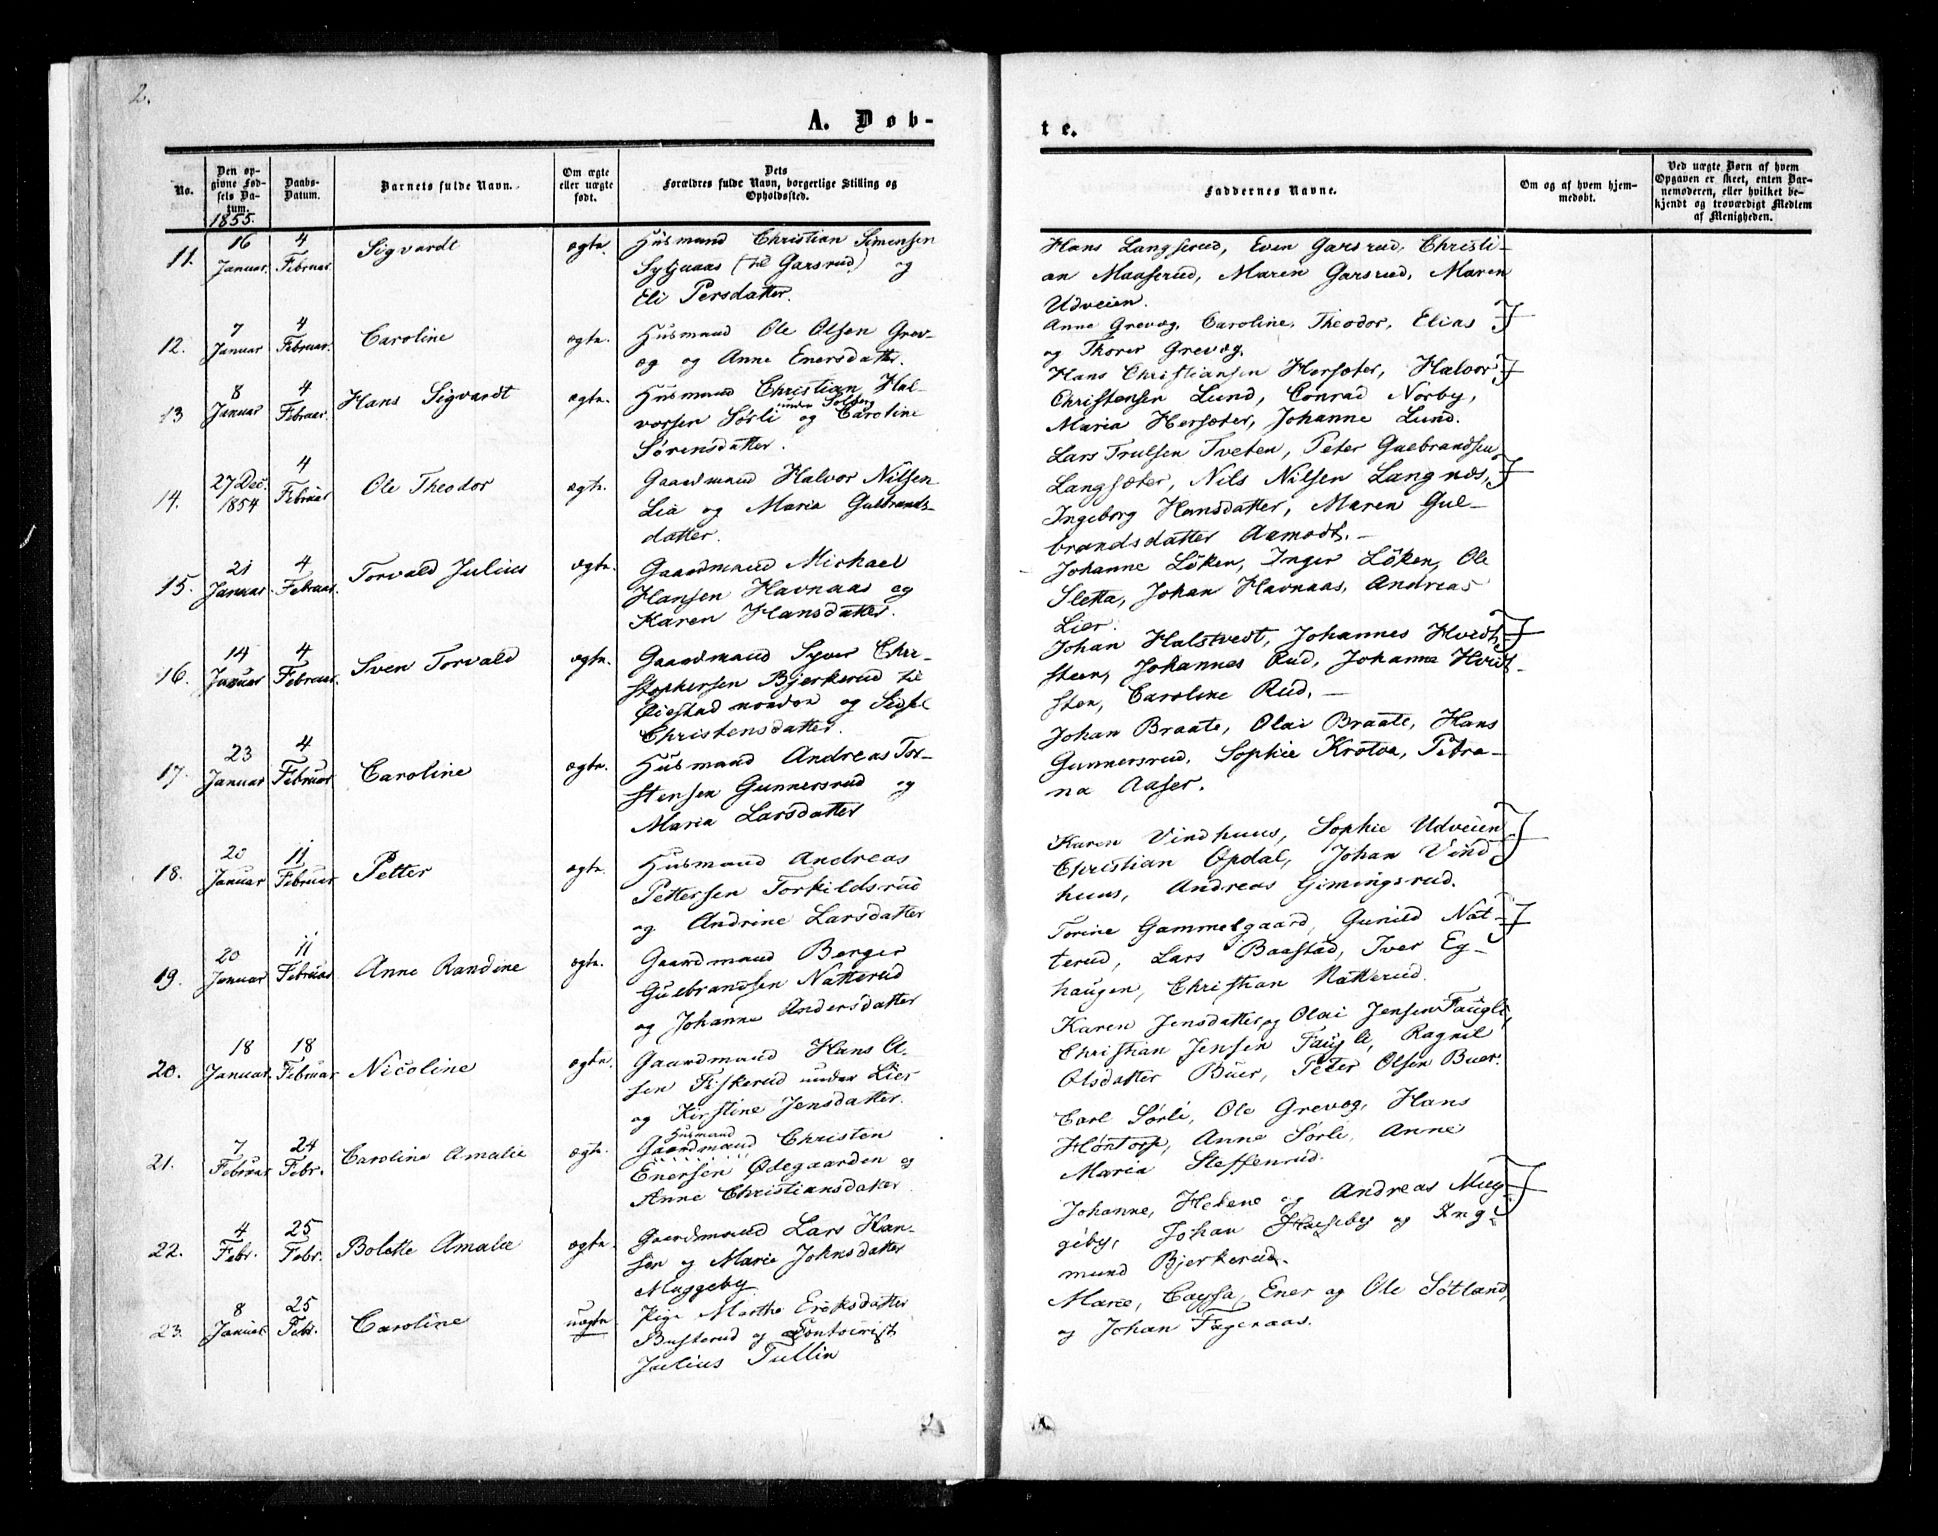 2.
A. Døb-
te.
No.
Den op-
givne Fød-
sels Da-
tum.
Daabs-
Datum.
Barnets fulde Navn.
Om ægte
eller uægte
født.
Dets
Forældres fulde Navn, borgerlige Stilling og
Opholdssted.
Faddernes Navne.
Om og af hvem hjem-
medøbt.
Ved uægte Børn af hvem
Opgaven er skeet, enten Bar-
nemoderen, eller hvilket be-
kjendt og troværdigt Medlem
af Menigheden.
1855.
11.
16
Januar.
4
Februar
Sigvardt
ægte.
Husmand Christian Simensen
Sytjuaas (til Garsrud) og
Eli Persdatter.
Hans Langserud, Even Garsrud, Christi-
an Maaserud, Maren Garsrud, Maren
Udveien.
12.
7
Januar
4
Februar.
Caroline
ægte.
Husmand Ole Olsen Grev-
æg og Anne Enersdatter.
Anne Grevæg, Caroline, Theodor, Elias
og Thorer Grevæg.
13
8
Januar
4
Februar.
Hans Sigvardt
ægte.
Husmand Christian Hal-
vorsen Sørli under Solberg og Caroline
Sørensdatter.
Hans Christiansen Hersæter, Halvor
Christensen Lund, Conrad Norby,
Maria Hersæter, Johanne Lund.
14.
27 Dec.
1854
4
Februar
Ole Theodor
ægte.
Gaardmand Halvor Nilsen
Lia og Maria Gulbrands-
datter.
Lars Trulsen Tveten, Peter Gulbrandsen
Langsæter, Nils Nilsen Langnæs,
Ingeborg Hansdatter, Maren Gul-
brandsdatter Aamodt.
15.
21
Januar.
4
Februar.
Torvald Julius
ægte.
Gaardmand Michael
Hansen Havnaas og
Karen Hansdatter.
Johanne Löken, Inger Löken, Ole
Sletta, Johan Havnaas, Andreas
Lier.
16.
14
Januar
4
Februar.
Sven Torvald
ægte.
Gaardmand Syver Chri-
stophersen Bjerkerud til
Øiestad nordon og Sidsel
Christensdatter.
Johan Halstvedt, Johannes Hvidt
steen, Johannes Rud, Johanne Hvidt
sten, Caroline Rud.
17.
23
Januar
4
Februar
Caroline
ægte.
Husmand Andreas Tor-
stensen Gunnersrud og
Maria Larsdatter
Johan Braate, Olai Braate, Hans
Gunnersrud, Sophie Krotva, Petra-
na Aaser.
18.
20
Januar
11
Februar
Petter
ægte.
Husmand Andreas
Pettersen Torkildsrud
og Andrine Larsdatter
Karen Vindhuus, Sophie Udveien
Christian Opdal, Johan Vind
huus, Andreas Gimingsrud.
19.
20
Januar
11
Februar
Anne Randine
ægte.
Gaardmand Berger
Gulbrandsen Natterud
og Johanne Andersdatter
Torine Gammelgaard, Gunild Nat-
terud, Lars Baastad, Iver Eg-
haugen, Christian Natterud.
20.
18
Januar.
18
Februar
Nicoline
ægte.
Gaardmand Hans A.
sen Fiskerud under Lier
og Kirstine Jensdatter.
Karen Jensdatter og Olai Jensen Faugli,
Christian Jensen Faugli, Ragnil
Olsdatter Buer, Peter Olsen Buer.
21.
7
Februar
24
Febr.
Caroline Amalie
ægte.
Husmand
Gaardmand Christen
Enersen Ødegaarden og
Anne Christiansdatter.
Carl Sørli, Ole Grevæg, Hans
Høntorp, Anne Sørli, Anne
Maria Steffenrud.
22.
4
Febr.
25
Febr.
Bolette Amalie
ægte.
Gaardmand Lars Han-
sen og Marie Johnsdatter
Muggeby
Johanne, Helene og Andreas Mug-
geby, Johan og Ing-
mund Bjerkerud.
23.
8
Januar
25
Febr.
Caroline
uægte
Pige Marthe Eriksdatter
Busterud og Contoirist
Julius Tullin
Marie, Caysa, Ener og Ole Søtland,
og Johan Fagenaas.